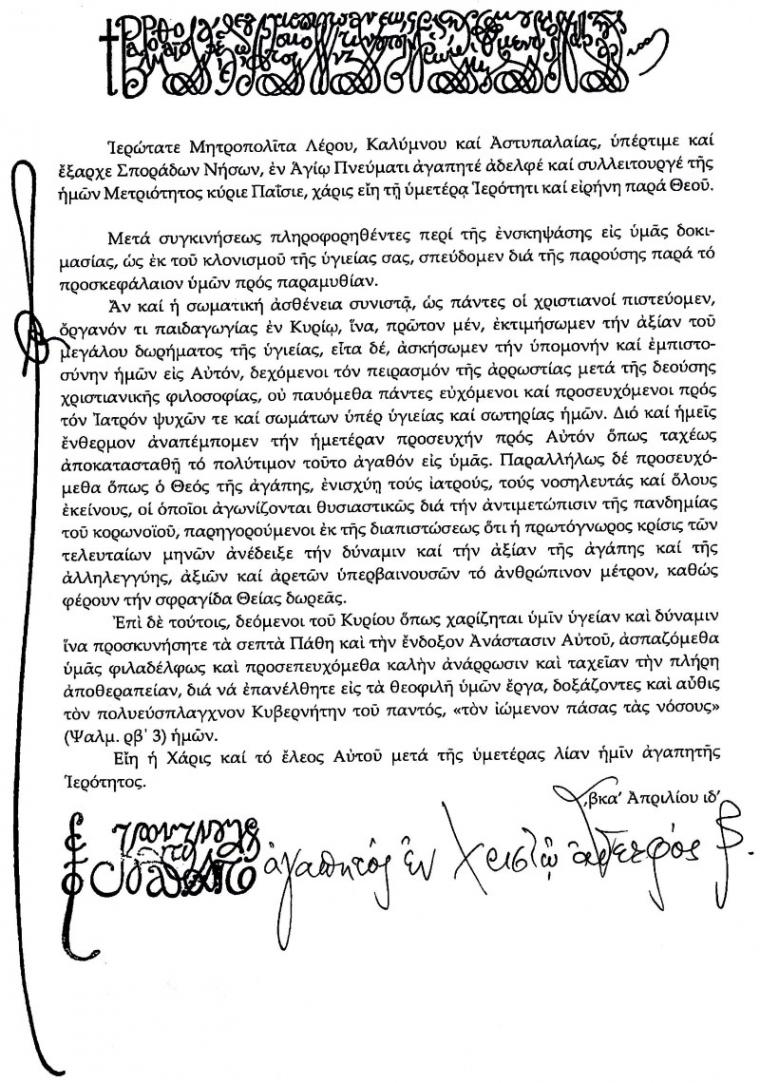 Ἱερώτατε Μητροπολῖτα Λέρου, Καλύμνου καί Ἀστυπαλαίας, ὑπέρτιμε καί
ἔξαρχε Σποράδων Νήσων, ἐν Ἁγίῳ Πνεύματι ἀγαπητέ ἀδελφέ καί συλλειτουργέ τῆς
ἡμῶν Μετριότητος κύριε Παΐσιε, χάρις εἴη τῇ ὑμετέρᾳ Ἱερότητι καί εἰρήνη παρά Θεοῦ.
Μετά συγκινήσεως πληροφορηθέντες περί τῆς ἐνσκηψάσης εἰς ὑμᾶς δοκι-
μασίας, ὡς ἐκ τοῦ κλονισμοῦ τῆς ὑγιείας σας, σπεύδομεν διά τῆς παρούσης παρά τό
προσκεφάλαιον ὑμῶν πρός παραμυθίαν.
Ἄν καί ἡ σωματική ἀσθένεια συνιστᾷ, ὡς πάντες οἱ χριστιανοί πιστεύομεν,
ὄργανόν τι παιδαγωγίας ἐν Κυρίῳ, ἵνα, πρῶτον μέν, ἐκτιμήσωμεν τήν ἀξίαν τοῦ
μεγάλου δωρήματος τῆς ὑγιείας, εἶτα δέ, ἀσκήσωμεν τήν ὑπομονήν καί ἐμπιστο-
σύνην ἡμῶν εἰς Αὐτόν, δεχόμενοι τόν πειρασμόν τῆς ἀρρωστίας μετά τῆς δεούσης
χριστιανικῆς φιλοσοφίας, οὐ παυόμεθα πάντες εὐχόμενοι καί προσευχόμενοι πρός
τόν Ἰατρόν ψυχῶν τε καί σωμάτων ὑπέρ ὑγιείας καί σωτηρίας ἡμῶν. Διό καί ἡμεῖς
ἔνθερμον ἀναπέμπομεν τήν ἡμετέραν προσευχήν πρός Αὐτόν ὅπως ταχέως
ἀποκατασταθῇ τό πολύτιμον τοῦτο ἀγαθόν εἰς ὑμᾶς. Παραλλήλως δέ προσευχό-
μεθα ὅπως ὁ Θεός τῆς ἀγάπης, ἐνισχύῃ τούς ἰατρούς, τούς νοσηλευτάς καί ὅλους
ἐκείνους, οἱ ὁποῖοι ἀγωνίζονται θυσιαστικῶς διά τήν ἀντιμετώπισιν τῆς πανδημίας
τοῦ κορωνοϊοῦ, παρηγορούμενοι ἐκ τῆς διαπιστώσεως ὅτι ἡ πρωτόγνωρος κρίσις τῶν
τελευταίων μηνῶν ἀνέδειξε τήν δύναμιν καί τήν ἀξίαν τῆς ἀγάπης καί τῆς
ἀλληλεγγύης, ἀξιῶν καί ἀρετῶν ὑπερβαινουσῶν τό ἀνθρώπινον μέτρον, καθώς
φέρουν τήν σφραγίδα Θείας δωρεᾶς.
Ἐπὶ δὲ τούτοις, δεόμενοι τοῦ Κυρίου ὅπως χαρίζηται ὑμῖν ὑγείαν καὶ δύναμιν
ἵνα προσκυνήσητε τὰ σεπτὰ Πάθη καὶ τὴν ἔνδοξον Ἀνάστασιν Αὐτοῦ, ἀσπαζόμεθα
ὑμᾶς φιλαδέλφως καὶ προσεπευχόμεθα καλὴν ἀνάρρωσιν καὶ ταχεῖαν τὴν πλήρη
ἀποθεραπείαν, διά νά ἐπανέλθητε εἰς τὰ θεοφιλῆ ὑμῶν ἔργα, δοξάζοντες καὶ αὖθις
τὸν πολυεύσπλαγχνον Κυβερνήτην τοῦ παντός, «τὸν ἰώμενον πάσας τὰς νόσους»
(Ψαλμ. ρβ΄ 3) ἡμῶν.
Εἴη ἡ Χάρις καί τό ἔλεος Αὐτοῦ μετά τῆς ὑμετέρας λίαν ἡμῖν ἀγαπητῆς
Ἱερότητος.
͵βκα΄ Ἀπριλίου ιδ΄
ἀγαπητὸς ἐν Χριστῷ ἀδελφός